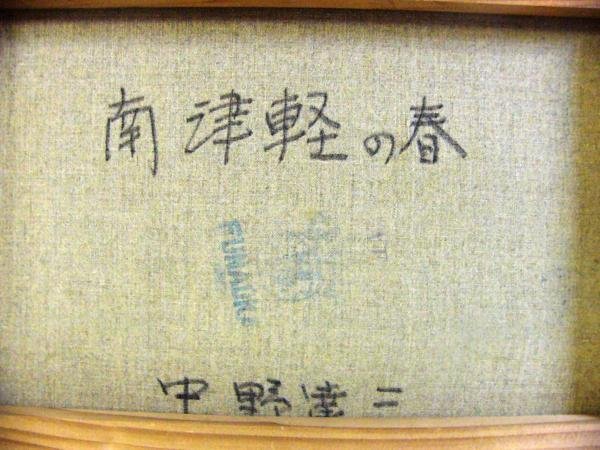 南津軽の春
FUNAOKA
中野達二